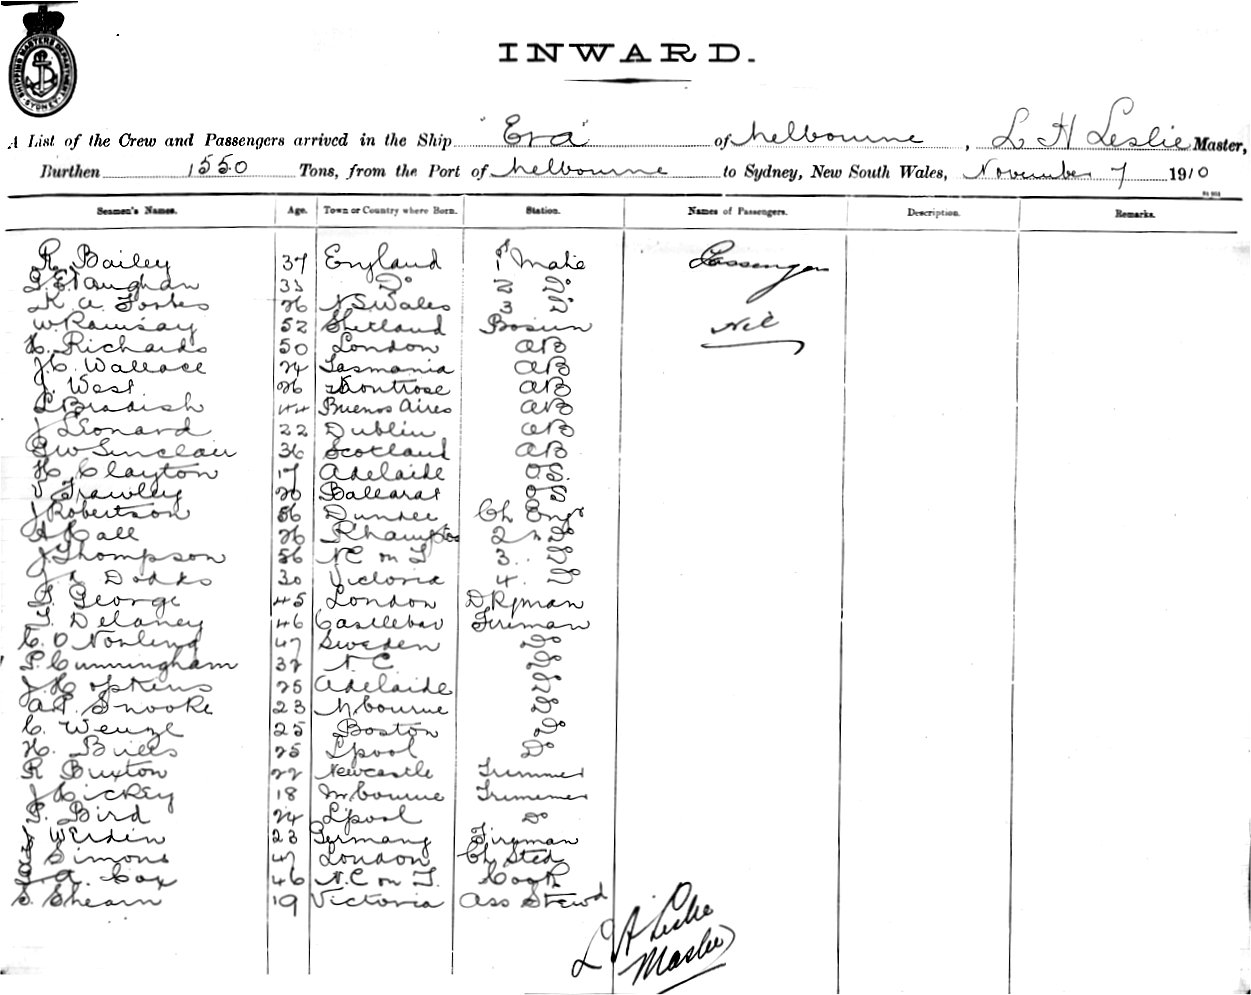 SHIPPING MASTERS DEPARTMENT SYDNEY
INWARD.
A List of the Crew and Passengers arrived in the Ship "Era" of Melbourne, L H Leslie Master,
Burthen 1550 Tons, from the Port of Melbourne to Sydney, New South Wales, November 7 1910
Seamen's Names. Age. Town or Country where Born. Station. Names of Passengers. Description. Remarks.
R Bailey 37 England 1st Mate Passengers
Vaughan 33 Do 2 Do
K A Forbes 26 N S Wales 3 Do
W Ramsay 52 Shetland Bosun Nil
H. Richards 50 London AB
J C Wallace 24 Tasmania AB
J. West 26 Montrose AB
L Bradish 44 Buenos Aires AB
J Leonard 22 Dublin AB
G W Sinclair 36 Scotland AB
H Clayton 17 Adelaide O.S.
V Frawley 20 Ballarat OS
J Robertson 56 Dundee Ch Engr
A Hall 26 Rhampton 2nd Do
J. Thompson 56 N C on T 3.. Do
Dodds 30 Victoria 4. Do
F. George 45 London DKyman
T. Delaney 46 Castlebar Fireman
C. O Norling 47 Sweden Do
P. Cunningham 32 N. C Do
J. Hopkins 25 Adelaide Do
A P. Snooke 23 Mbourne Do
C. Wenzl 25 Boston Do
H. Bills 25 Lpool Do
R Buxton 22 Newcastle Trimmer
J Hickey 18 Mbourne Trimmer
P. Bird 24 Lpool Do
Werdin 23 Germany Fireman
Simons 47 London Ch Sted
A. Cox 46 N. C on T. Cook
S. Shearn 19 Victoria Ass Stewd
L H Leslie
Master